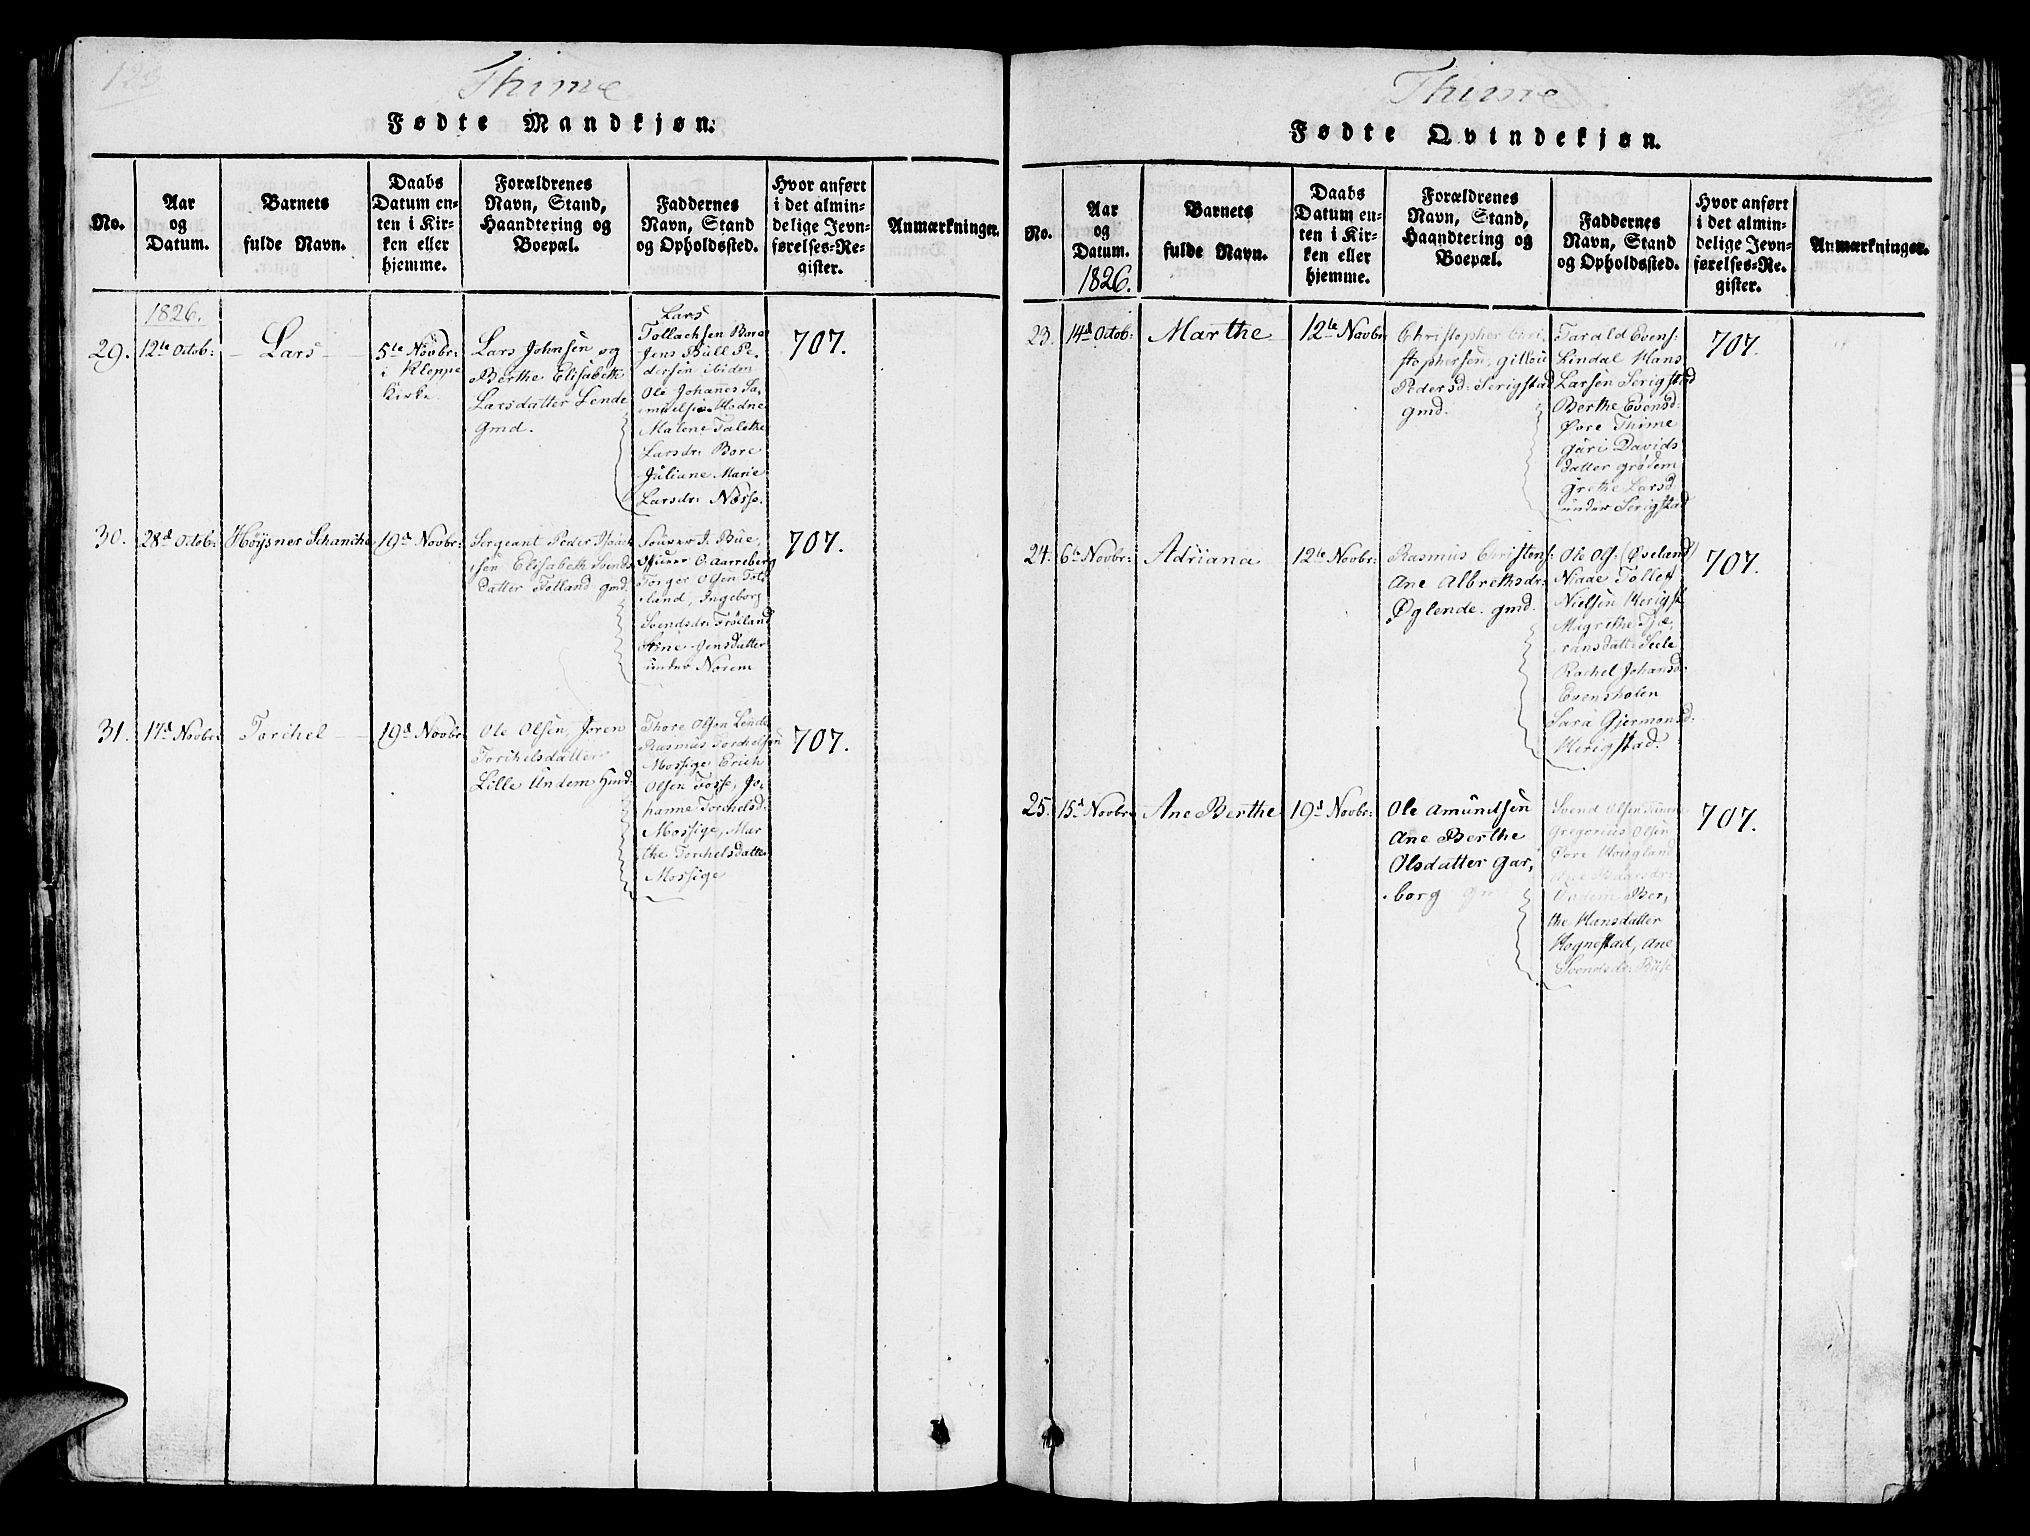 123
Thime
Fødte Mandkjøn.
No.
Aar
og
Datum.
Barnets
fulde Navn.
Daabs
Datum en-
ten i Kir-
ken eller
hjemme.
Forældrenes
Navn, Stand,
Haandtering og
Boepæl.
Faddernes
Navn, Stand
og Opholdssted.
Hvor anført
i det almin-
delige Jevn-
førelses-Re-
gister.
Anmærkninger.
1826.
29.
12te Octob:
Lars
5te Novbr:
i Kleppe
Kirke.
Lars Johnsen og
Berthe Elisabeth
Larsdatter Lende
gmd.
Lars
Tollachsen Bore
Jens Bull Pe-
dersen ibidm
Ole Johanes Sa-
muelsen Hodne
Malene Talethe
Larsdr: Bore
Juliane Marie
Larsdr: Næsse.
707.
30.
28d Octob:
Höysner Schanche
19d Novbr:
Sergeant Peder
sen Elisabeth Svends
datter Tolland gmd.
J. Bue,
O. Aarreberg
Torger Olsen Tol-
land, Ingeborg
Svendsdr: Fröiland
Stine Jensdatter
under Norem
707.
31.
17d Novbr:
Torchel
19d Novbr:
Ole Olsen, Joren
Torchelsdatter
Lille Undem Huud:
Thore Olsen Lende
Rasmus Torchelsen
Mossige Erich
Olsen Fosse, Jo-
hanne Torchelsd:
Mossige, Mar
the Torchelsdatter
Mossige
707.
Thime
Fødte Qvindekjøn.
No.
Aar
og
Datum.
1826.
Barnets
fulde Navn.
Daabs
Datum en-
ten i Kir-
ken eller
hjemme.
Forældrenes
Navn, Stand,
Haandtering og
Boepæl.
Faddernes
Navn, Stand
og Opholdssted.
Hvor anført
i det almin-
delige Jevn-
førelses-Re-
gister.
Anmærkninger.
23.
14d Octob:
Marthe
12te Novbr
Christopher Chri-
stophersen, Gitlou
Pedersd: Serigstad
gmd.
Tarald Evens:
Lindal Hans
Larsen Serigstad
Berthe Evensd:
Øvre Thime
Guri Davids
datter Grödem
Grethe Larsd
under Serigstad
707.
24.
6te Novbr:
Adriana
12te Novbr:
Rasmus Christens:
Ane Albrethsdr:
Øglende. gmd.
Ole Ols: (Øveland)
Niaae Tollef
Nielsen Herigst
Magrethe Tjo-
ransdatt: Seele
Rachel Johansd:
Evensholen
Sara Gjermonsd:
Herigstad.
707.
25.
15d Novbr:
Ane Berthe
19d Novbr:
Ole Amundsen
Ane Berthe
Olsdatter Gar-
borg
Svend Olsen
Gregorius Olsen
Øvre Hougland
Ane
Undem Ber-
the Hansdatter
Hognestad, Ane
Svendsdr: Büse
707.